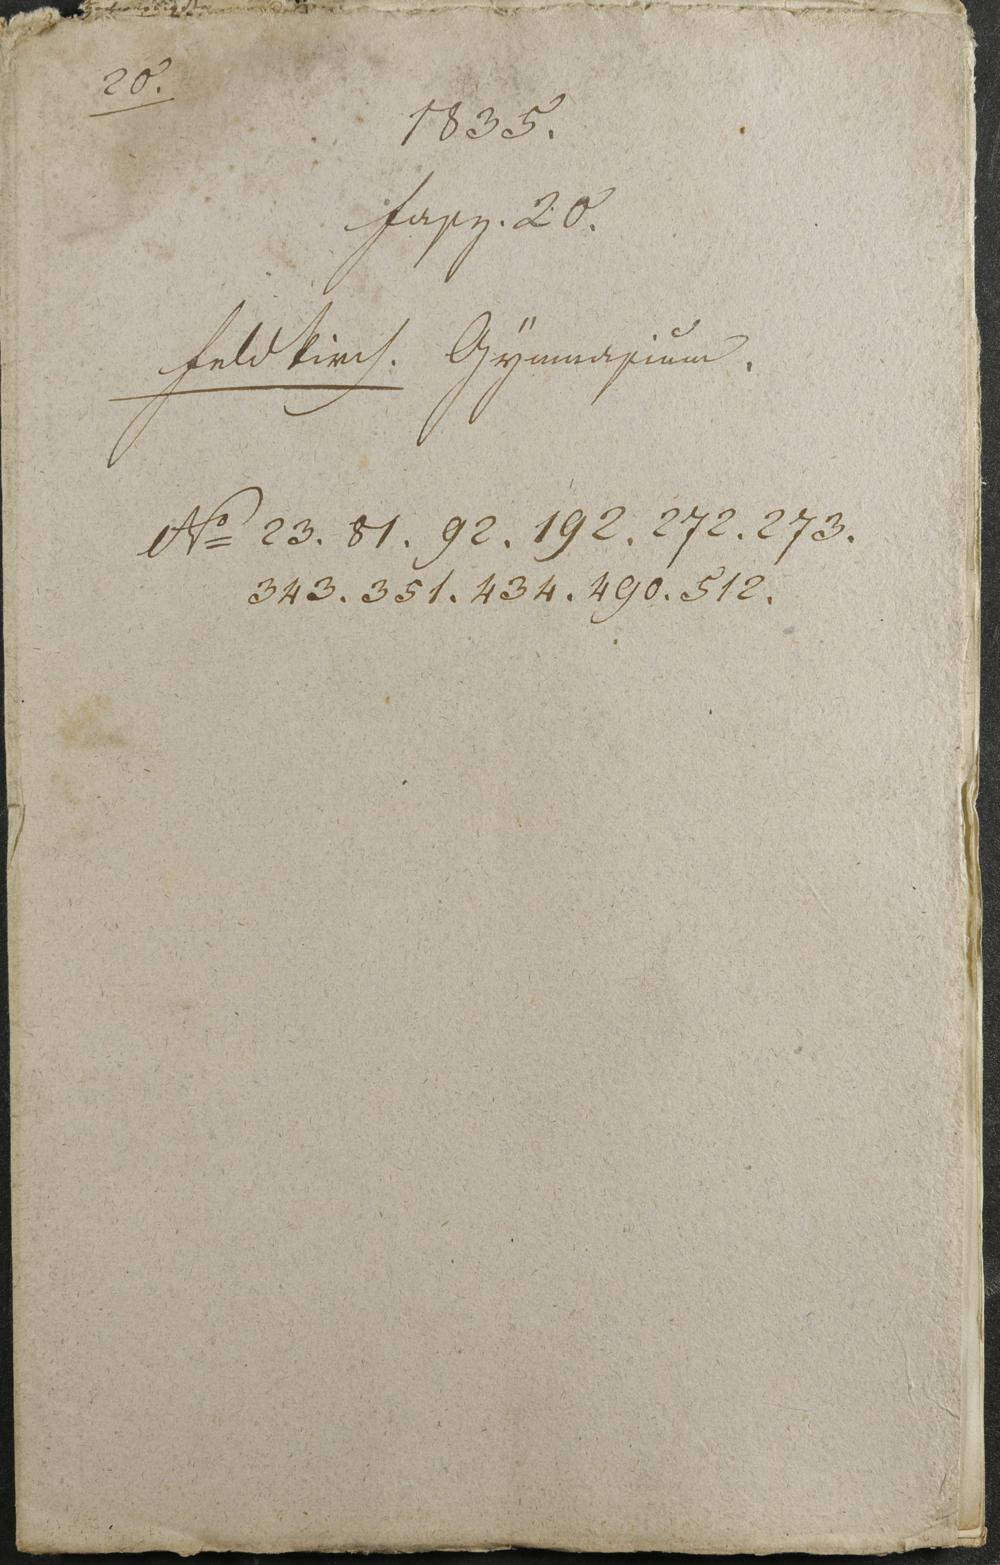 20.
1835.
Fasz. 20.
Feldkirch. Gÿmnasium.
No 23. 81. 92. 192. 272. 273.
343. 351. 434. 490. 512.